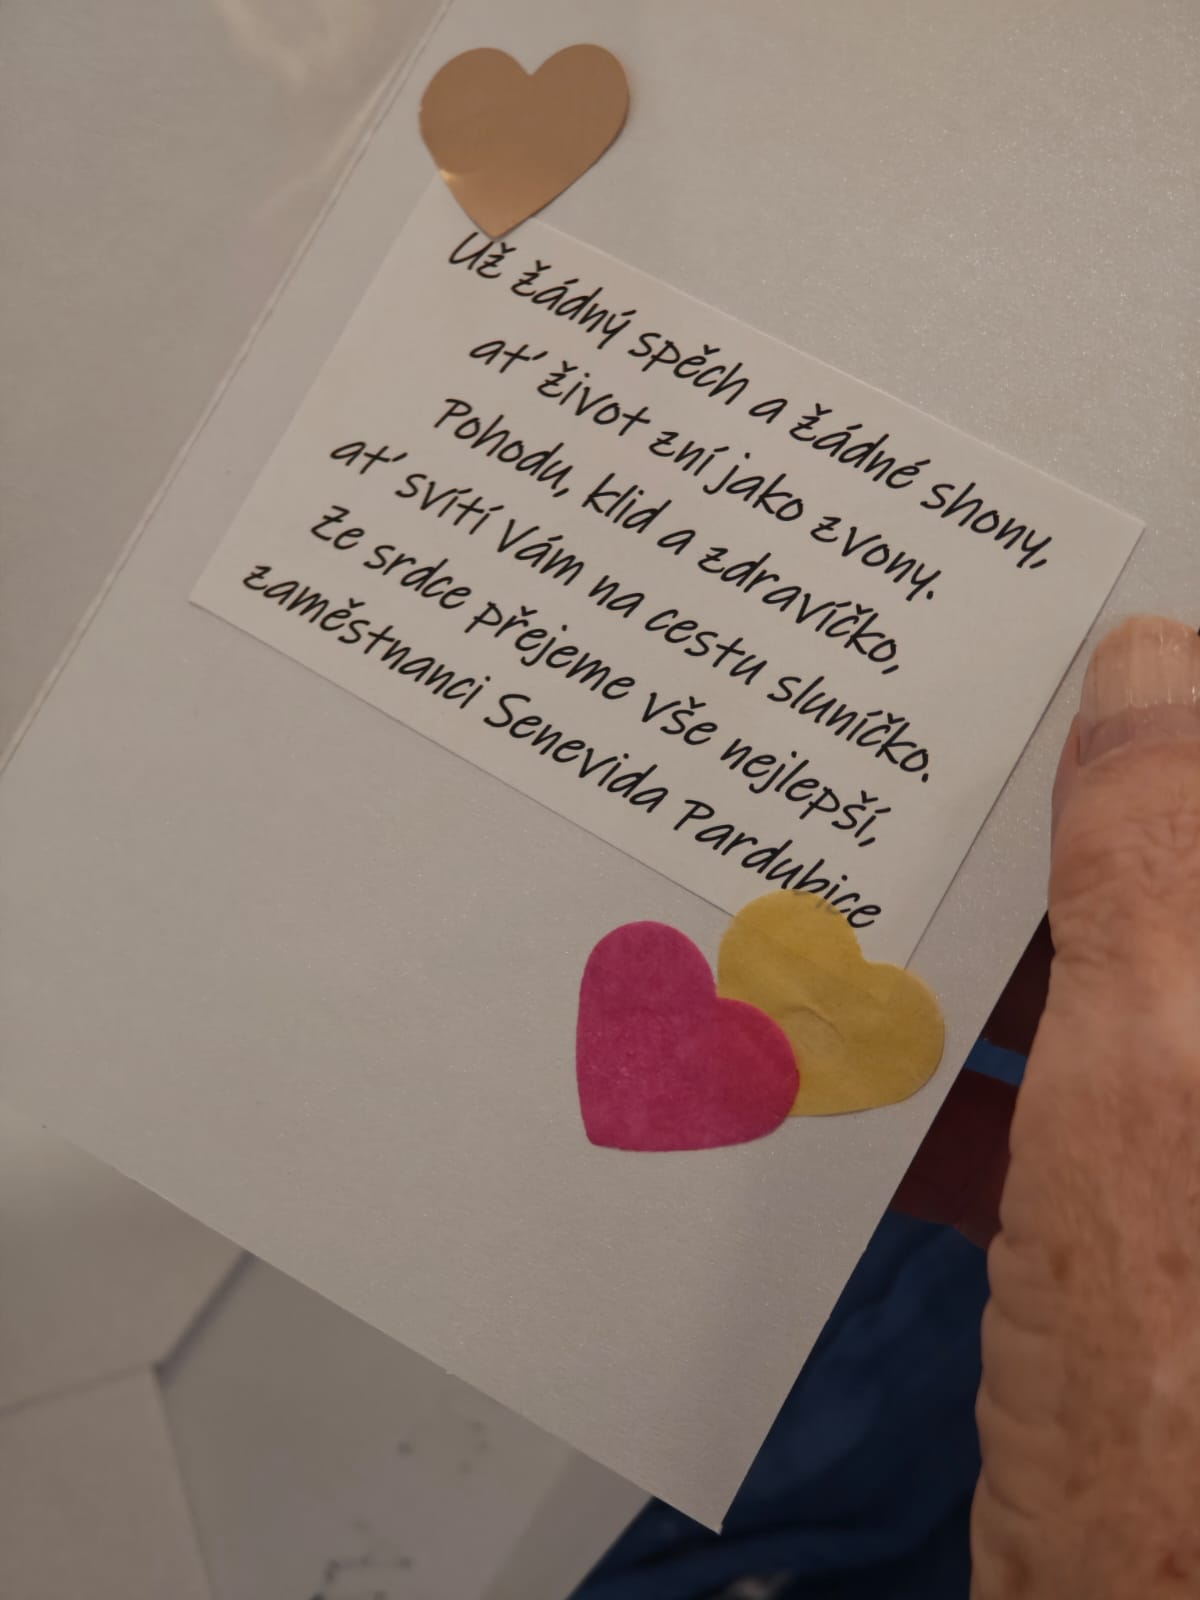 Už žádný spěch a žádné shony,
ať život zní jako zvony.
Pohodu, klid a zdravíčko,
ať svítí Vám na cestu sluníčko.
Ze srdce přejeme vše nejlepší,
zaměstnanci Senevida Pardubice